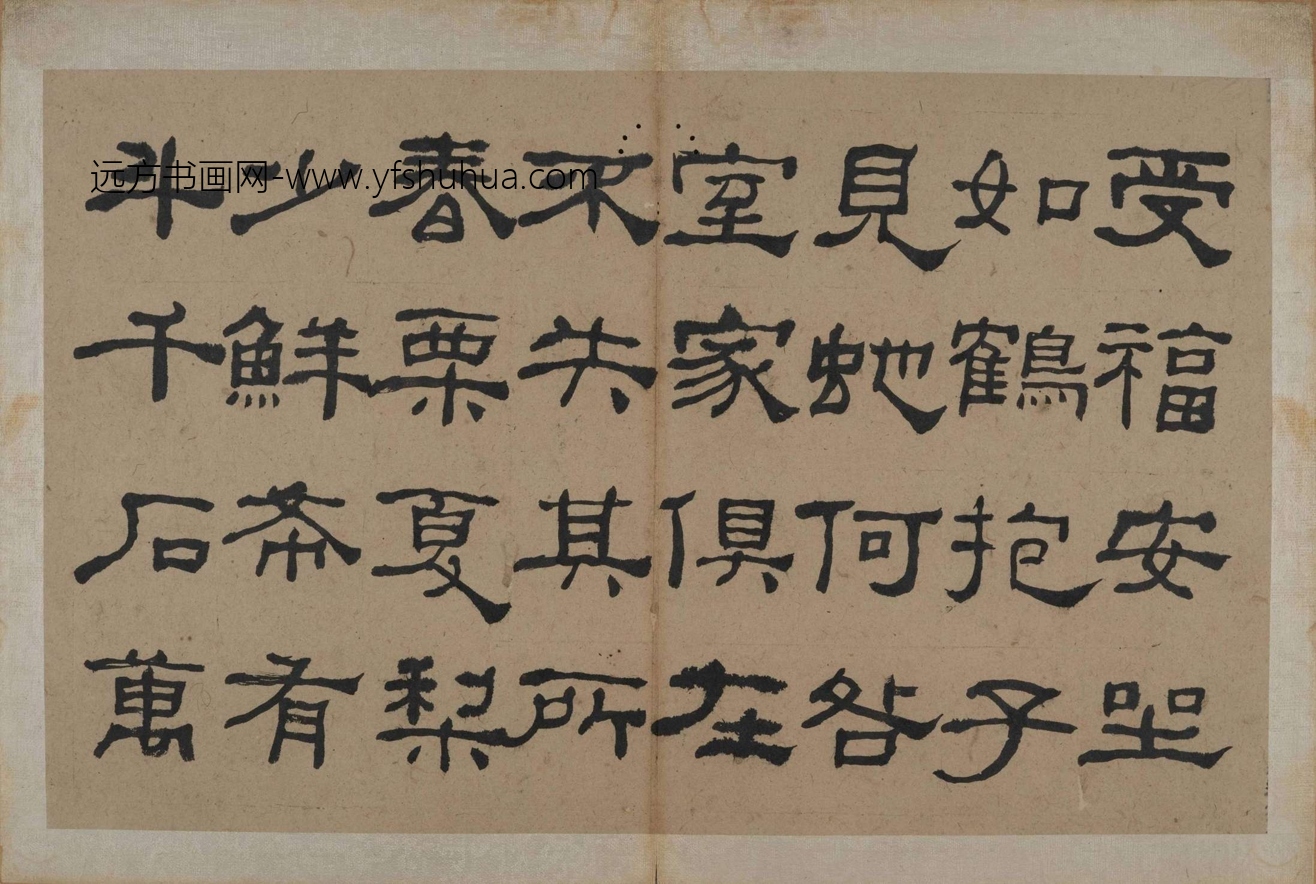 受福安坐
如鶴抱子
見虵何咎
室家俱在
不失其所
春栗夏梨
少鮮希有
斗千石萬
远方书画网-www.yfshuhua.com